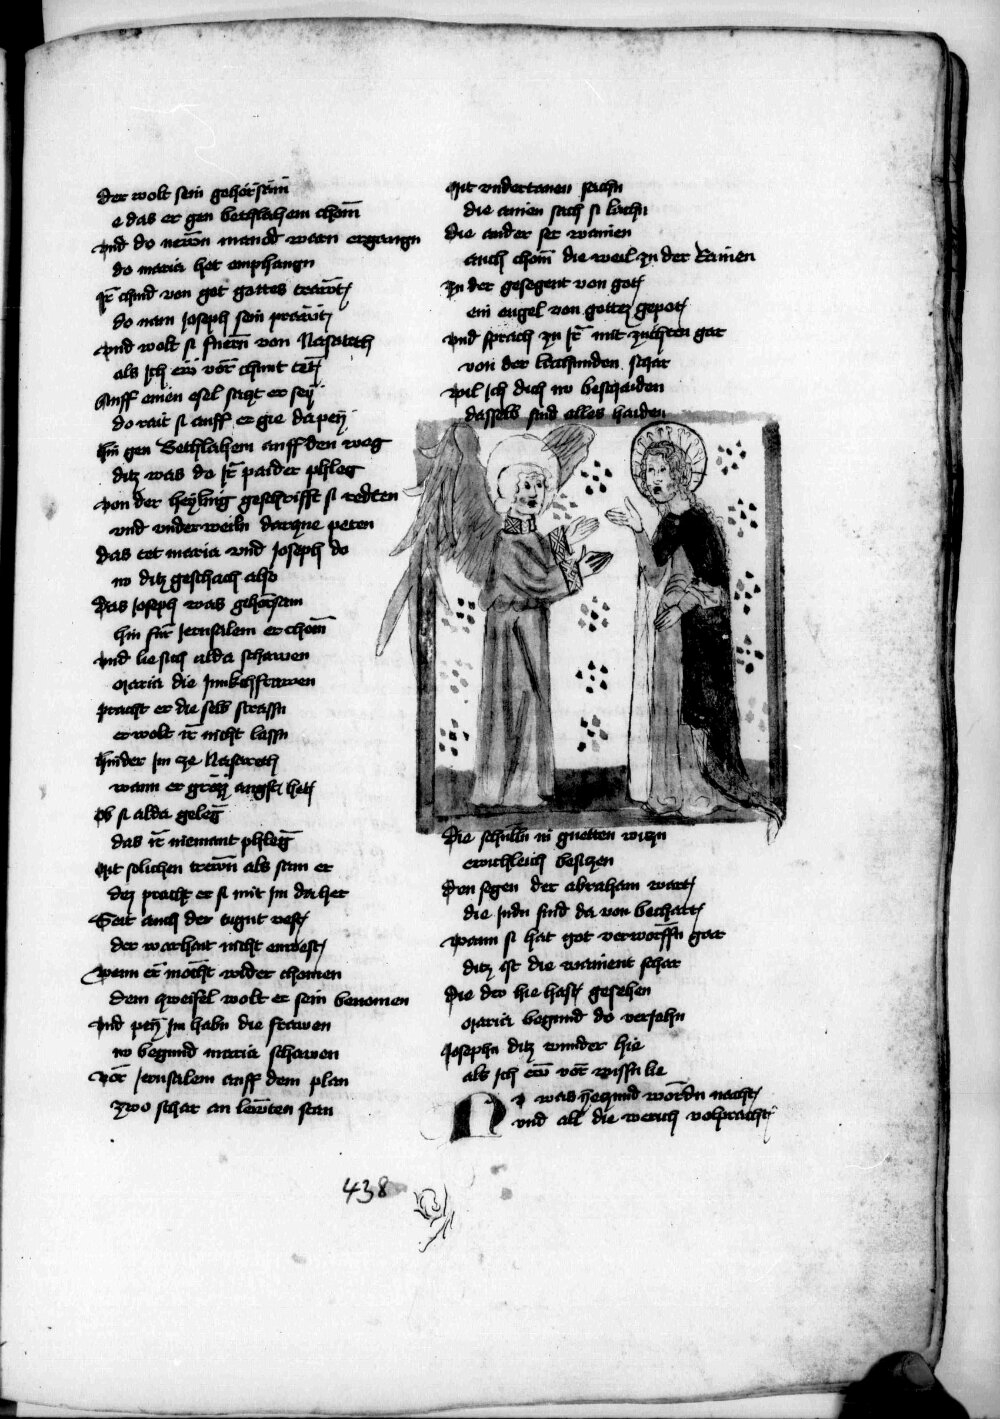 Der wolt sein gehorsam̄
e das er gen bethlahem chom̄
Vnd do newn manod warn ergangn
do maria het emphangn
Ir chind von got gottes trawt
do nam Joseph sein prawt
Vnd wolt si fuern von Nasareth
als Ich ew vor chunt tet
Auff einen esel saczt er sey
do rait si auff er gie da pey
Hin gen Bethlahem auff den weg
ditz was do Ir paider phleg
Von der heyling geschrifft si redten
vnd vnderweiln darczue peten
Das tet maria vnd Joseph do
no ditz geschach also
Das Joseph was gehorsam
hin fur Jerusalem er chom̄
Vnd lie sich alda schawen
Maria die Junkchfrawen
Pracht er die selb strassn
er wolt ir nicht lassn
Hinder Im cze Nasareth
wann er groz angst het
Ob si alda geleg
das ir niemant phleg
Mit solichen trewn als sam er
dez pracht er si mit Im da her
Seit auch der tugnt vest
der warhait nicht enwest
Wenn er mocht wider chomen
dem zweifel wolt er sein benomen
Vnd pey Im habn die frawen
no begund maria schawen
Vor Jerusalem auff dem plan
zwo schar an lewten stan
Mit vndertanen sachn
die ainen sach si lachn
Die ander ser wainen
auch chom̄ die weil zu der Rainen
Zu der gesegent von got
ein engel von gottez gepot
Vnd sprach zu Ir mit zuchten gar
von der lachunden schar
Wil Ich dich no beschaiden
dasselb sind alles haiden
Die schulln in guetten witzn
ewichleich besitzen
Den segen der abraham wart
die Judn sind da von bechart
Wann si hat got verworffn gar
ditz ist die wainent schar
Die dw hie hast gesehen
Maria begund do verjehn
Josephn ditz wunder hie
als Ich ew vor wissn lie
No was heczund wordn nacht
vnd all die werch volpracht
438